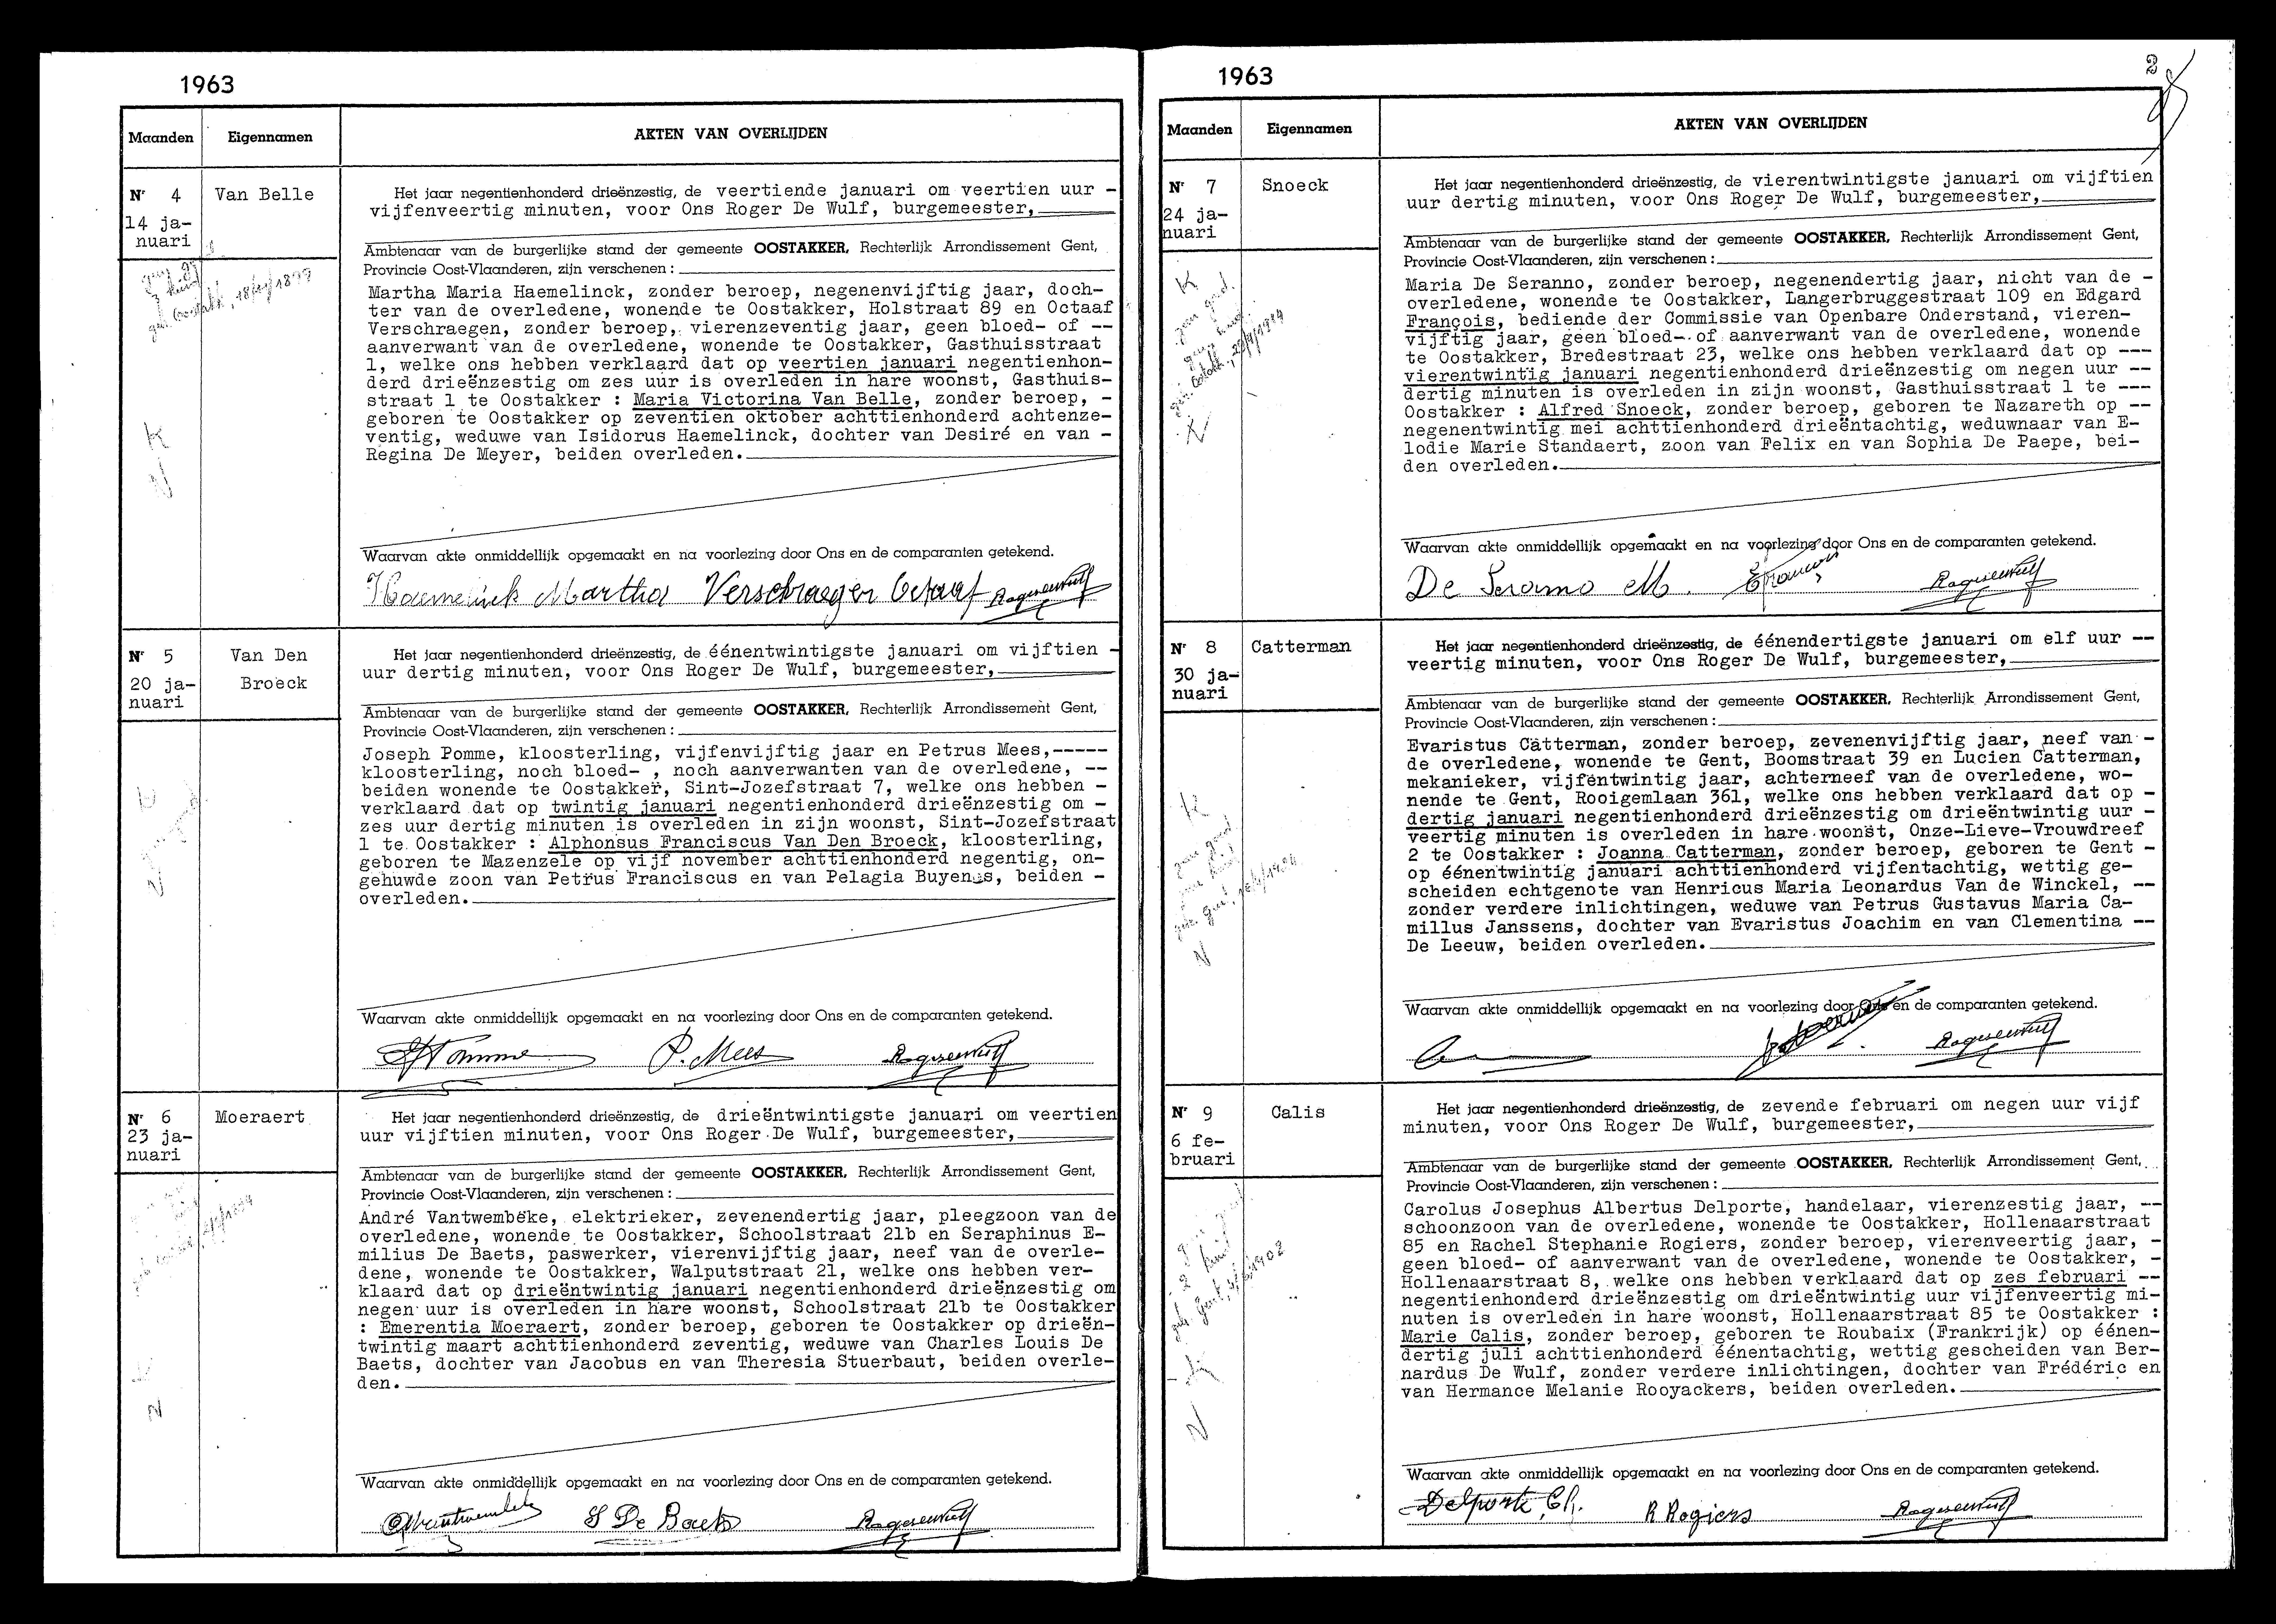 1963
Maanden Eigennamen AKTEN VAN OVERLIJDEN
Nr 4 Van Belle
14 ja-
nuari
geb. Oostakk, 18/10/1899
K
N
Het jaar negentienhonderd drieënzestig, de veertiende januari om veertien uur -
vijfenveertig minuten, voor Ons Roger De Wulf, burgemeester,
Ambtenaar van de burgerlijke stand der gemeente OOSTAKKER, Rechterlijk Arrondissement Gent,
Provincie Oost-Vlaanderen, zijn verschenen :
Martha Maria Haemelinck, zonder beroep, negenenvijftig jaar, doch-
ter van de overledene, wonende te Oostakker, Holstraat 89 en Octaaf
Verschraegen, zonder beroep, vierenzeventig jaar, geen bloed- of --
aanverwant van de overledene, wonende te Oostakker, Gasthuisstraat
1, welke ons hebben verklaard dat op veertien januari negentienhon-
derd drieënzestig om zes uur is overleden in hare woonst, Gasthuis-
straat 1 te Oostakker : Maria Victorina Van Belle, zonder beroep, -
geboren te Oostakker op zeventien oktober achttienhonderd achtenze-
ventig, weduwe van Isidorus Haemelinck, dochter van Desiré en van -
Regina De Meyer, beiden overleden.
Waarvan akte onmiddellijk opgemaakt en na voorlezing door Ons en de comparanten getekend.
Haemelinck Martha Verschraegen Octaaf Rogerdewulf
Nr 5 Van Den
20 ja- Broeck
nuari
N
Het jaar negentienhonderd drieënzestig, de éénentwintigste januari om vijftien -
uur dertig minuten, voor Ons Roger De Wulf, burgemeester,
Ambtenaar van de burgerlijke stand der gemeente OOSTAKKER, Rechterlijk Arrondissement Gent,
Provincie Oost-Vlaanderen, zijn verschenen :
Joseph Pomme, kloosterling, vijfenvijftig jaar en Petrus Mees,-----
kloosterling, noch bloed- , noch aanverwanten van de overledene, --
beiden wonende te Oostakker, Sint-Jozefstraat 7, welke ons hebben -
verklaard dat op twintig januari negentienhonderd drieënzestig om -
zes uur dertig minuten is overleden in zijn woonst, Sint-Jozefstraat
1 te Oostakker : Alphonsus Franciscus Van Den Broeck, kloosterling,
geboren te Mazenzele op vijf november achttienhonderd negentig, on-
gehuwde zoon van Petrus Franciscus en van Pelagia Buyens, beiden -
overleden.
Waarvan akte onmiddellijk opgemaakt en na voorlezing door Ons en de comparanten getekend.
Pomme P. Mees Rogerdewulf
Nr 6 Moeraert
23 ja-
nuari
N
Het jaar negentienhonderd drieënzestig, de drieëntwintigste januari om veertien
uur vijftien minuten, voor Ons Roger De Wulf, burgemeester,
Ambtenaar van de burgerlijke stand der gemeente OOSTAKKER, Rechterlijk Arrondissement Gent,
Provincie Oost-Vlaanderen, zijn verschenen :
André Vantwembeke, elektrieker, zevenendertig jaar, pleegzoon van de
overledene, wonende te Oostakker, Schoolstraat 21b en Seraphinus E-
milius De Baets, paswerker, vierenvijftig jaar, neef van de overle-
dene, wonende te Oostakker, Walputstraat 21, welke ons hebben ver-
klaard dat op drieëntwintig januari negentienhonderd drieënzestig om
negen uur is overleden in hare woonst, Schoolstraat 21b te Oostakker
: Emerentia Moeraert, zonder beroep, geboren te Oostakker op drieën-
twintig maart achttienhonderd zeventig, weduwe van Charles Louis De
Baets, dochter van Jacobus en van Theresia Stuerbaut, beiden overle-
den.
Waarvan akte onmiddellijk opgemaakt en na voorlezing door Ons en de comparanten getekend.
AVantwembeke S De Baets Rogerdewulf
1963
2
Maanden Eigennamen AKTEN VAN OVERLIJDEN
Nr 7 Snoeck
24 ja-
nuari
K
N
Het jaar negentienhonderd drieënzestig, de vierentwintigste januari om vijftien
uur dertig minuten, voor Ons Roger De Wulf, burgemeester,
Ambtenaar van de burgerlijke stand der gemeente OOSTAKKER, Rechterlijk Arrondissement Gent,
Provincie Oost-Vlaanderen, zijn verschenen :
Maria De Seranno, zonder beroep, negenendertig jaar, nicht van de -
overledene, wonende te Oostakker, Langerbruggestraat 109 en Edgard
François, bediende der Commissie van Openbare Onderstand, vieren-
vijftig jaar, geen bloed- of aanverwant van de overledene, wonende
te Oostakker, Bredestraat 23, welke ons hebben verklaard dat op ---
vierentwintig januari negentienhonderd drieënzestig om negen uur --
dertig minuten is overleden in zijn woonst, Gasthuisstraat 1 te ---
Oostakker : Alfred Snoeck, zonder beroep, geboren te Nazareth op --
negenentwintig mei achttienhonderd drieëntachtig, weduwnaar van E-
lodie Marie Standaert, zoon van Felix en van Sophia De Paepe, bei-
den overleden.
Waarvan akte onmiddellijk opgemaakt en na voorlezing door Ons en de comparanten getekend.
De Seranno M. EFrancois Rogerdewulf
Nr 8 Catterman
30 ja-
nuari
K
N
Het jaar negentienhonderd drieënzestig, de éénendertigste januari om elf uur --
veertig minuten, voor Ons Roger De Wulf, burgemeester,
Ambtenaar van de burgerlijke stand der gemeente OOSTAKKER, Rechterlijk Arrondissement Gent,
Provincie Oost-Vlaanderen, zijn verschenen :
Evaristus Catterman, zonder beroep, zevenenvijftig jaar, neef van -
de overledene, wonende te Gent, Boomstraat 39 en Lucien Catterman,
mekanieker, vijfentwintig jaar, achterneef van de overledene, wo-
nende te Gent, Rooigemlaan 361, welke ons hebben verklaard dat op -
dertig januari negentienhonderd drieënzestig om drieëntwintig uur -
veertig minuten is overleden in hare woonst, Onze-Lieve-Vrouwdreef
2 te Oostakker : Joanna Catterman, zonder beroep, geboren te Gent -
op éénentwintig januari achttienhonderd vijfentachtig, wettig ge-
scheiden echtgenote van Henricus Maria Leonardus Van de Winckel, --
zonder verdere inlichtingen, weduwe van Petrus Gustavus Maria Ca-
millus Janssens, dochter van Evaristus Joachim en van Clementina --
De Leeuw, beiden overleden.
Waarvan akte onmiddellijk opgemaakt en na voorlezing door Ons en de comparanten getekend.
Rogerdewulf
Nr 9 Calis
6 fe-
bruari
K
N
Het jaar negentienhonderd drieënzestig, de zevende februari om negen uur vijf
minuten, voor Ons Roger De Wulf, burgemeester,
Ambtenaar van de burgerlijke stand der gemeente OOSTAKKER, Rechterlijk Arrondissement Gent,
Provincie Oost-Vlaanderen, zijn verschenen :
Carolus Josephus Albertus Delporte, handelaar, vierenzestig jaar, --
schoonzoon van de overledene, wonende te Oostakker, Hollenaarstraat
85 en Rachel Stephanie Rogiers, zonder beroep, vierenveertig jaar, -
geen bloed- of aanverwant van de overledene, wonende te Oostakker, -
Hollenaarstraat 8, welke ons hebben verklaard dat op zes februari --
negentienhonderd drieënzestig om drieëntwintig uur vijfenveertig mi-
nuten is overleden in hare woonst, Hollenaarstraat 85 te Oostakker :
Marie Calis, zonder beroep, geboren te Roubaix (Frankrijk) op éénen-
dertig juli achttienhonderd éénentachtig, wettig gescheiden van Ber-
nardus De Wulf, zonder verdere inlichtingen, dochter van Frédéric en
van Hermance Melanie Rooyackers, beiden overleden.
Waarvan akte onmiddellijk opgemaakt en na voorlezing door Ons en de comparanten getekend.
Delporte Ch. R Rogiers Rogerdewulf